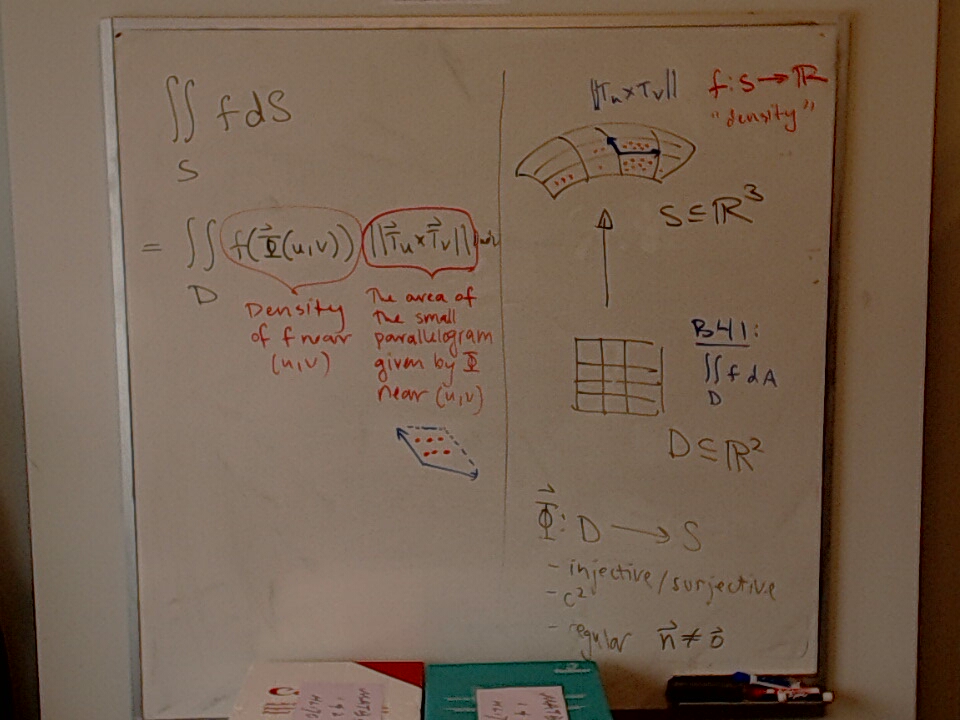 ∬ f dS
S
= ∬ f(Φ⃗(u,v)) ||T⃗u×T⃗v||
D
Density
of f near
(u,v)
The area of
the small
parallelogram
given by Φ
near (u,v)
||Tu×Tv||
f: S → ℝ
"density"
S ⊆ ℝ³
B41:
∬ f dA
D
D ⊆ ℝ²
Φ⃗: D → S
- injective/surjective
- C²
- regular n⃗ ≠ 0⃗